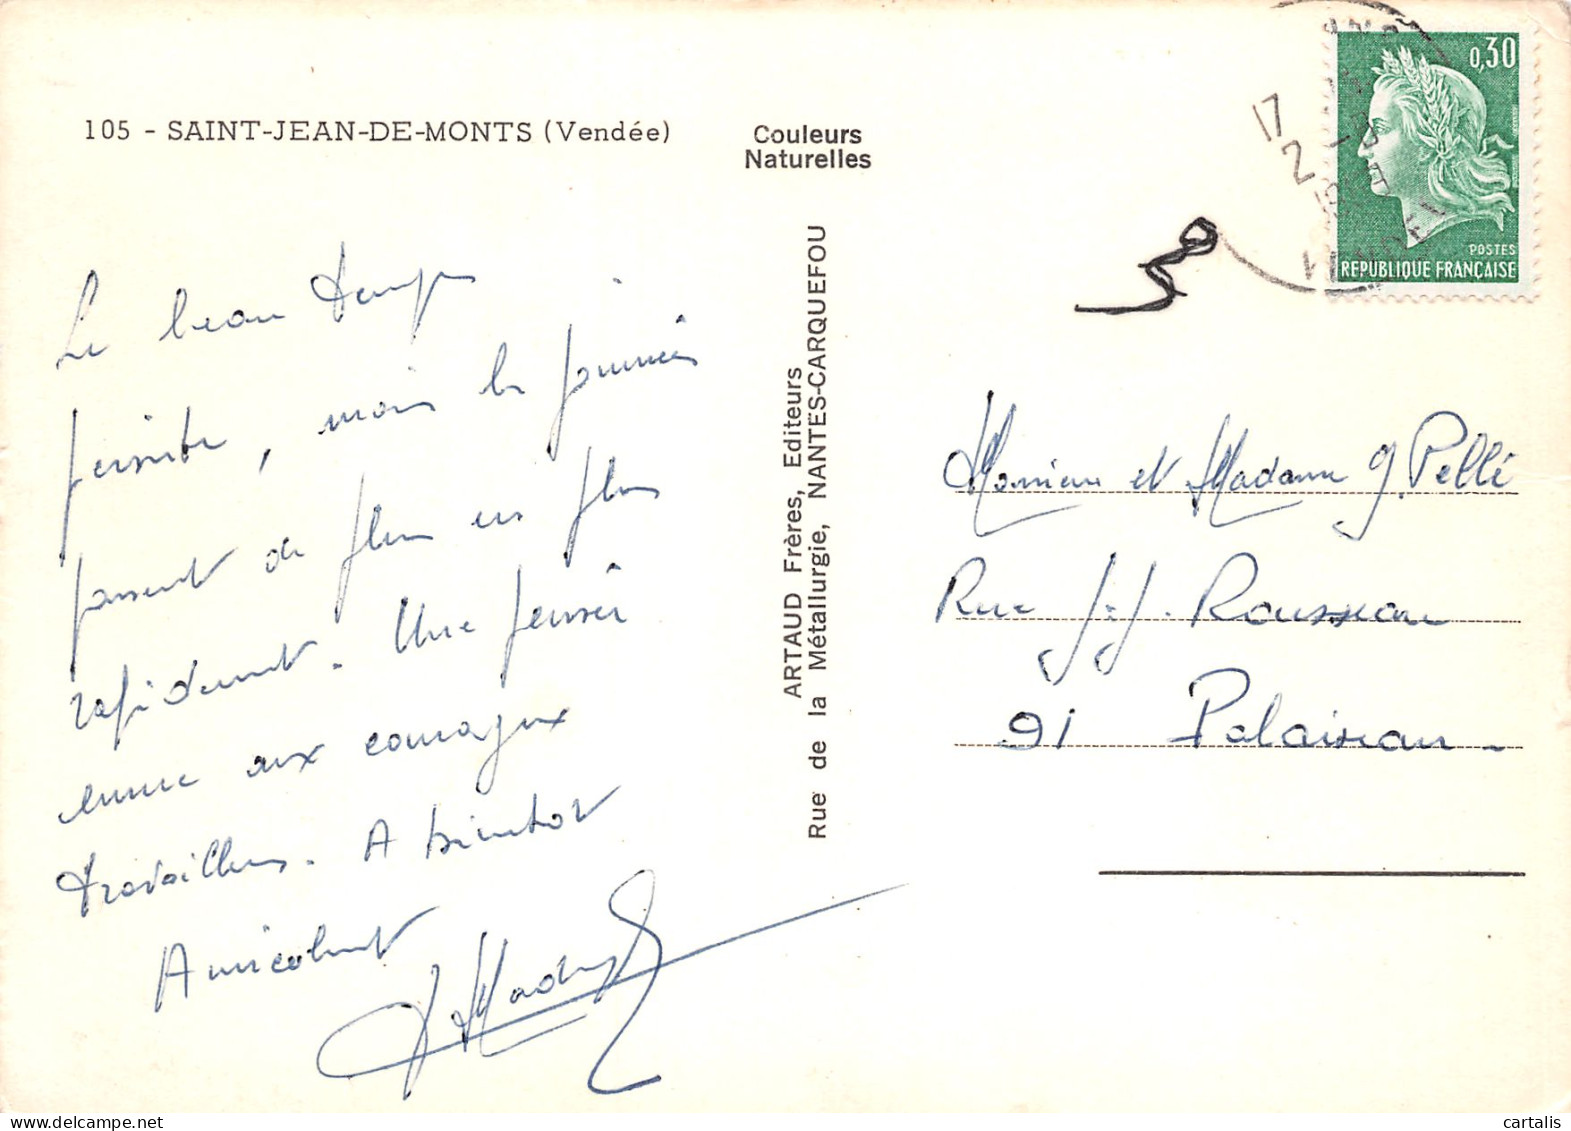 105 - SAINT-JEAN-DE-MONTS (Vendée)
Couleurs
Naturelles
Le beau temps
persiste, mais les journées
passent de plus en plus
rapidement. Une pensée
émue aux courageux
travailleurs. A bientôt
Amicalement
ARTAUD Frères, Editeurs
Rue de la Métallurgie, NANTES-CARQUEFOU
0,30
POSTES
REPUBLIQUE FRANÇAISE
17
2
Monsieur et Madame J. Pellé
Rue J.J. Rousseau
91 Palaiseau
cartalis